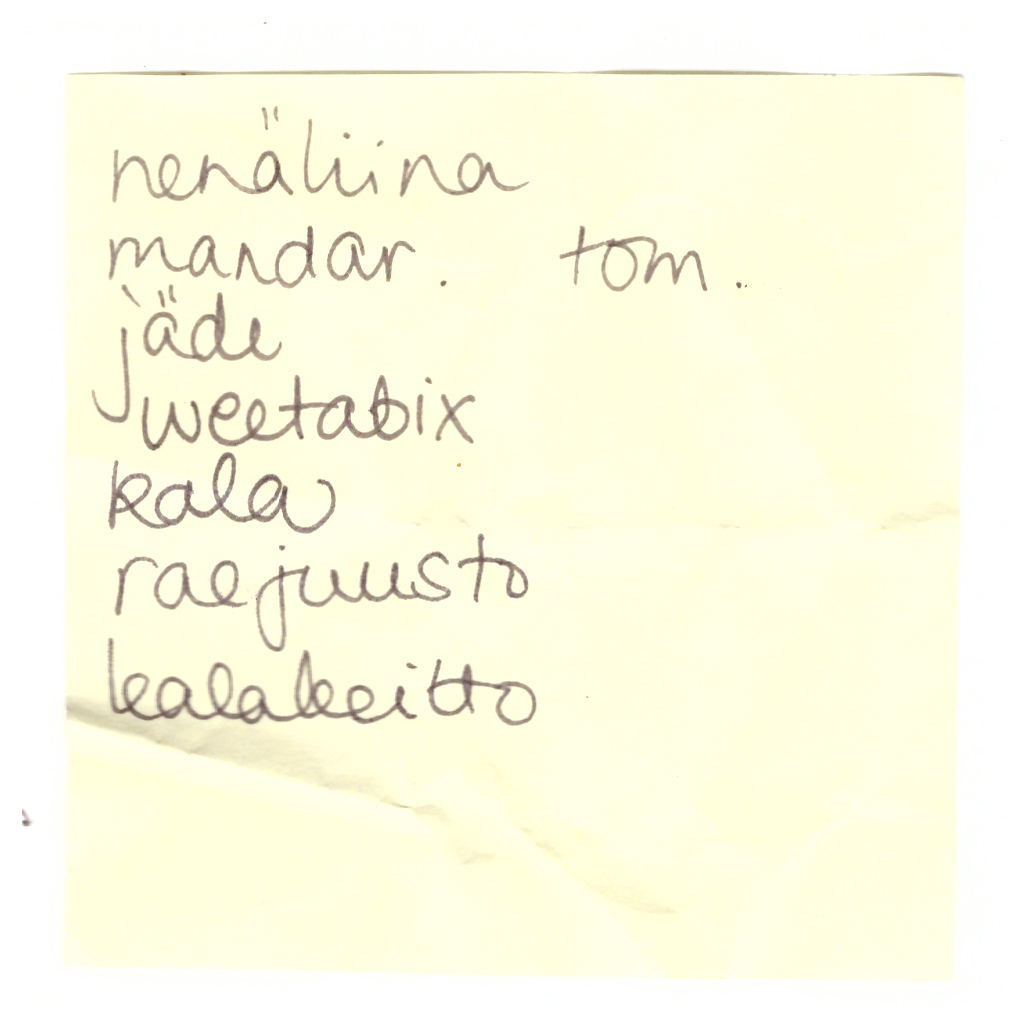 nenäliina
mandar. tom.
jäde
weetabix
kala
raejuusto
kalakeitto